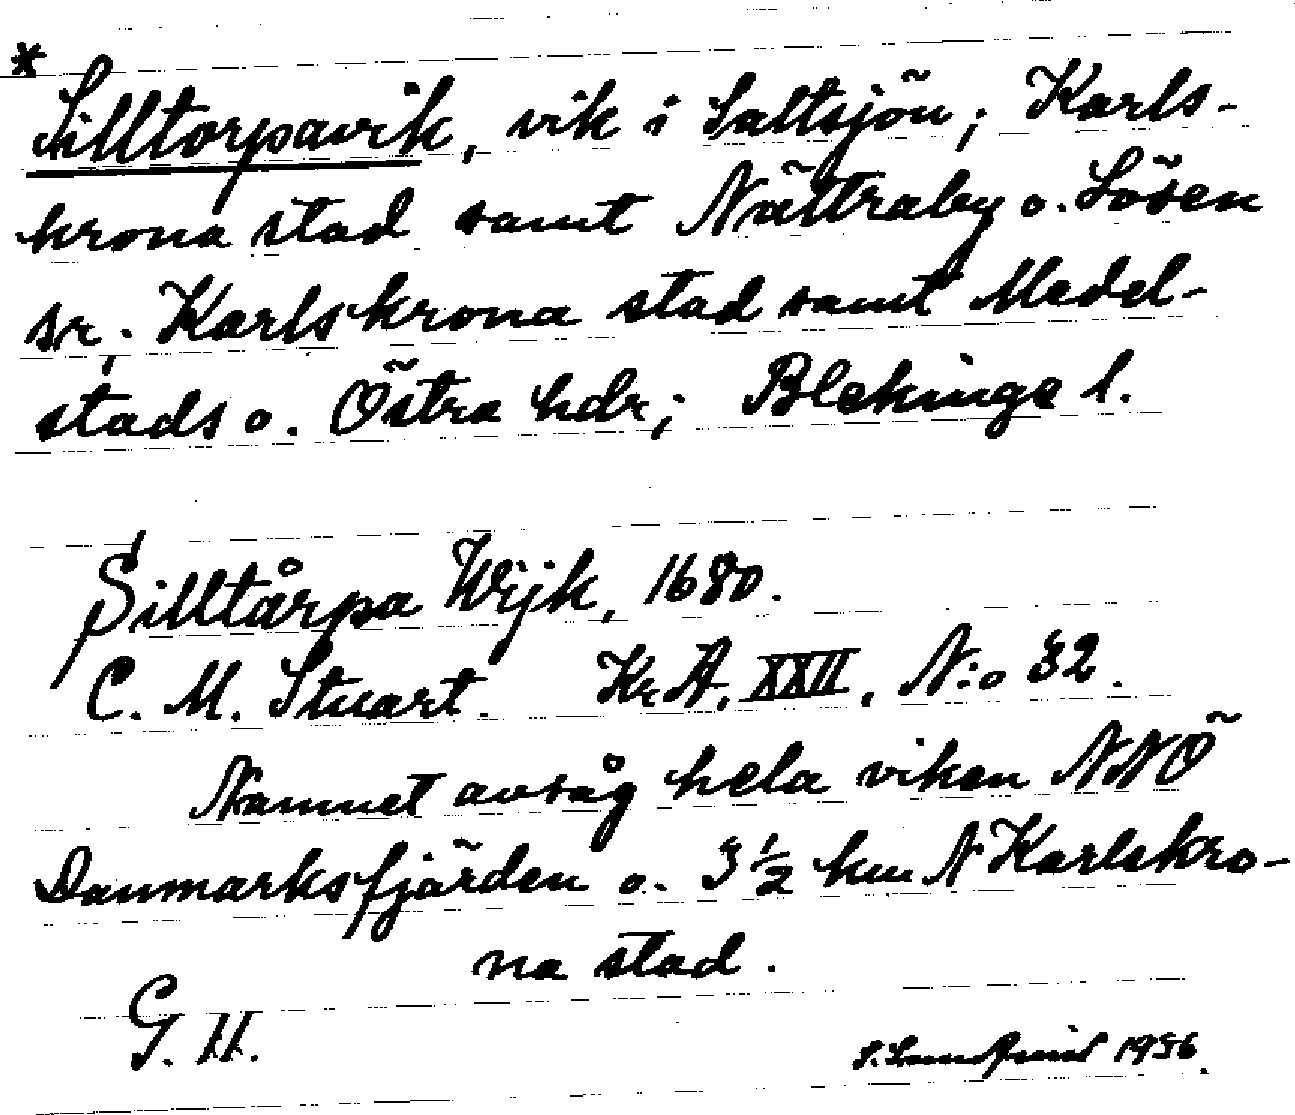 * Silltorpavik, vik i Saltsjön; Karls-
krona stad samt Nättraby o. Lösen
snr; Karlskrona stad samt Medel-
stads o. Östra hdr; Blekinge l.
Silltårpa Wijk, 1680.
C. M. Stuart. Kr A, XXII, N:o 32.
Namnet avsåg hela viken NNÖ
Danmarksfjärden o. 3 ½ km N Karlskro-
na stad.
G. H.
S. 1956.